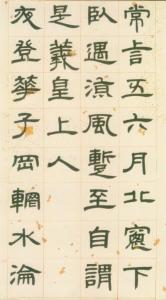 常言五六月北窗下
臥遇涼風暫至自謂
是羲皇上人
夜登華子岡輞水淪